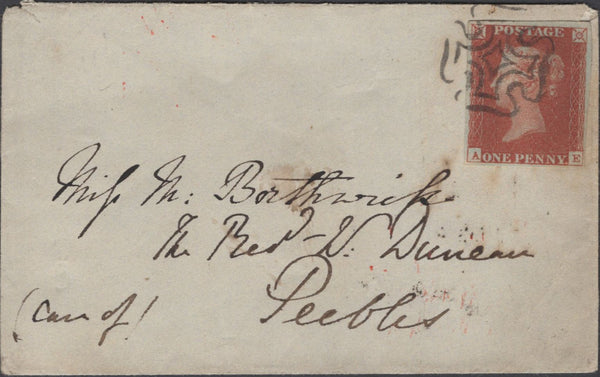 POSTAGE
A ONE PENNY E
Miss M: Borthwick
The Revd W: Duncan
(care of)
Peebles